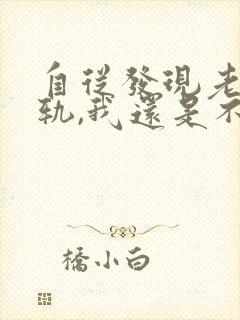 自從發現老
軌,我還是不
橋小白